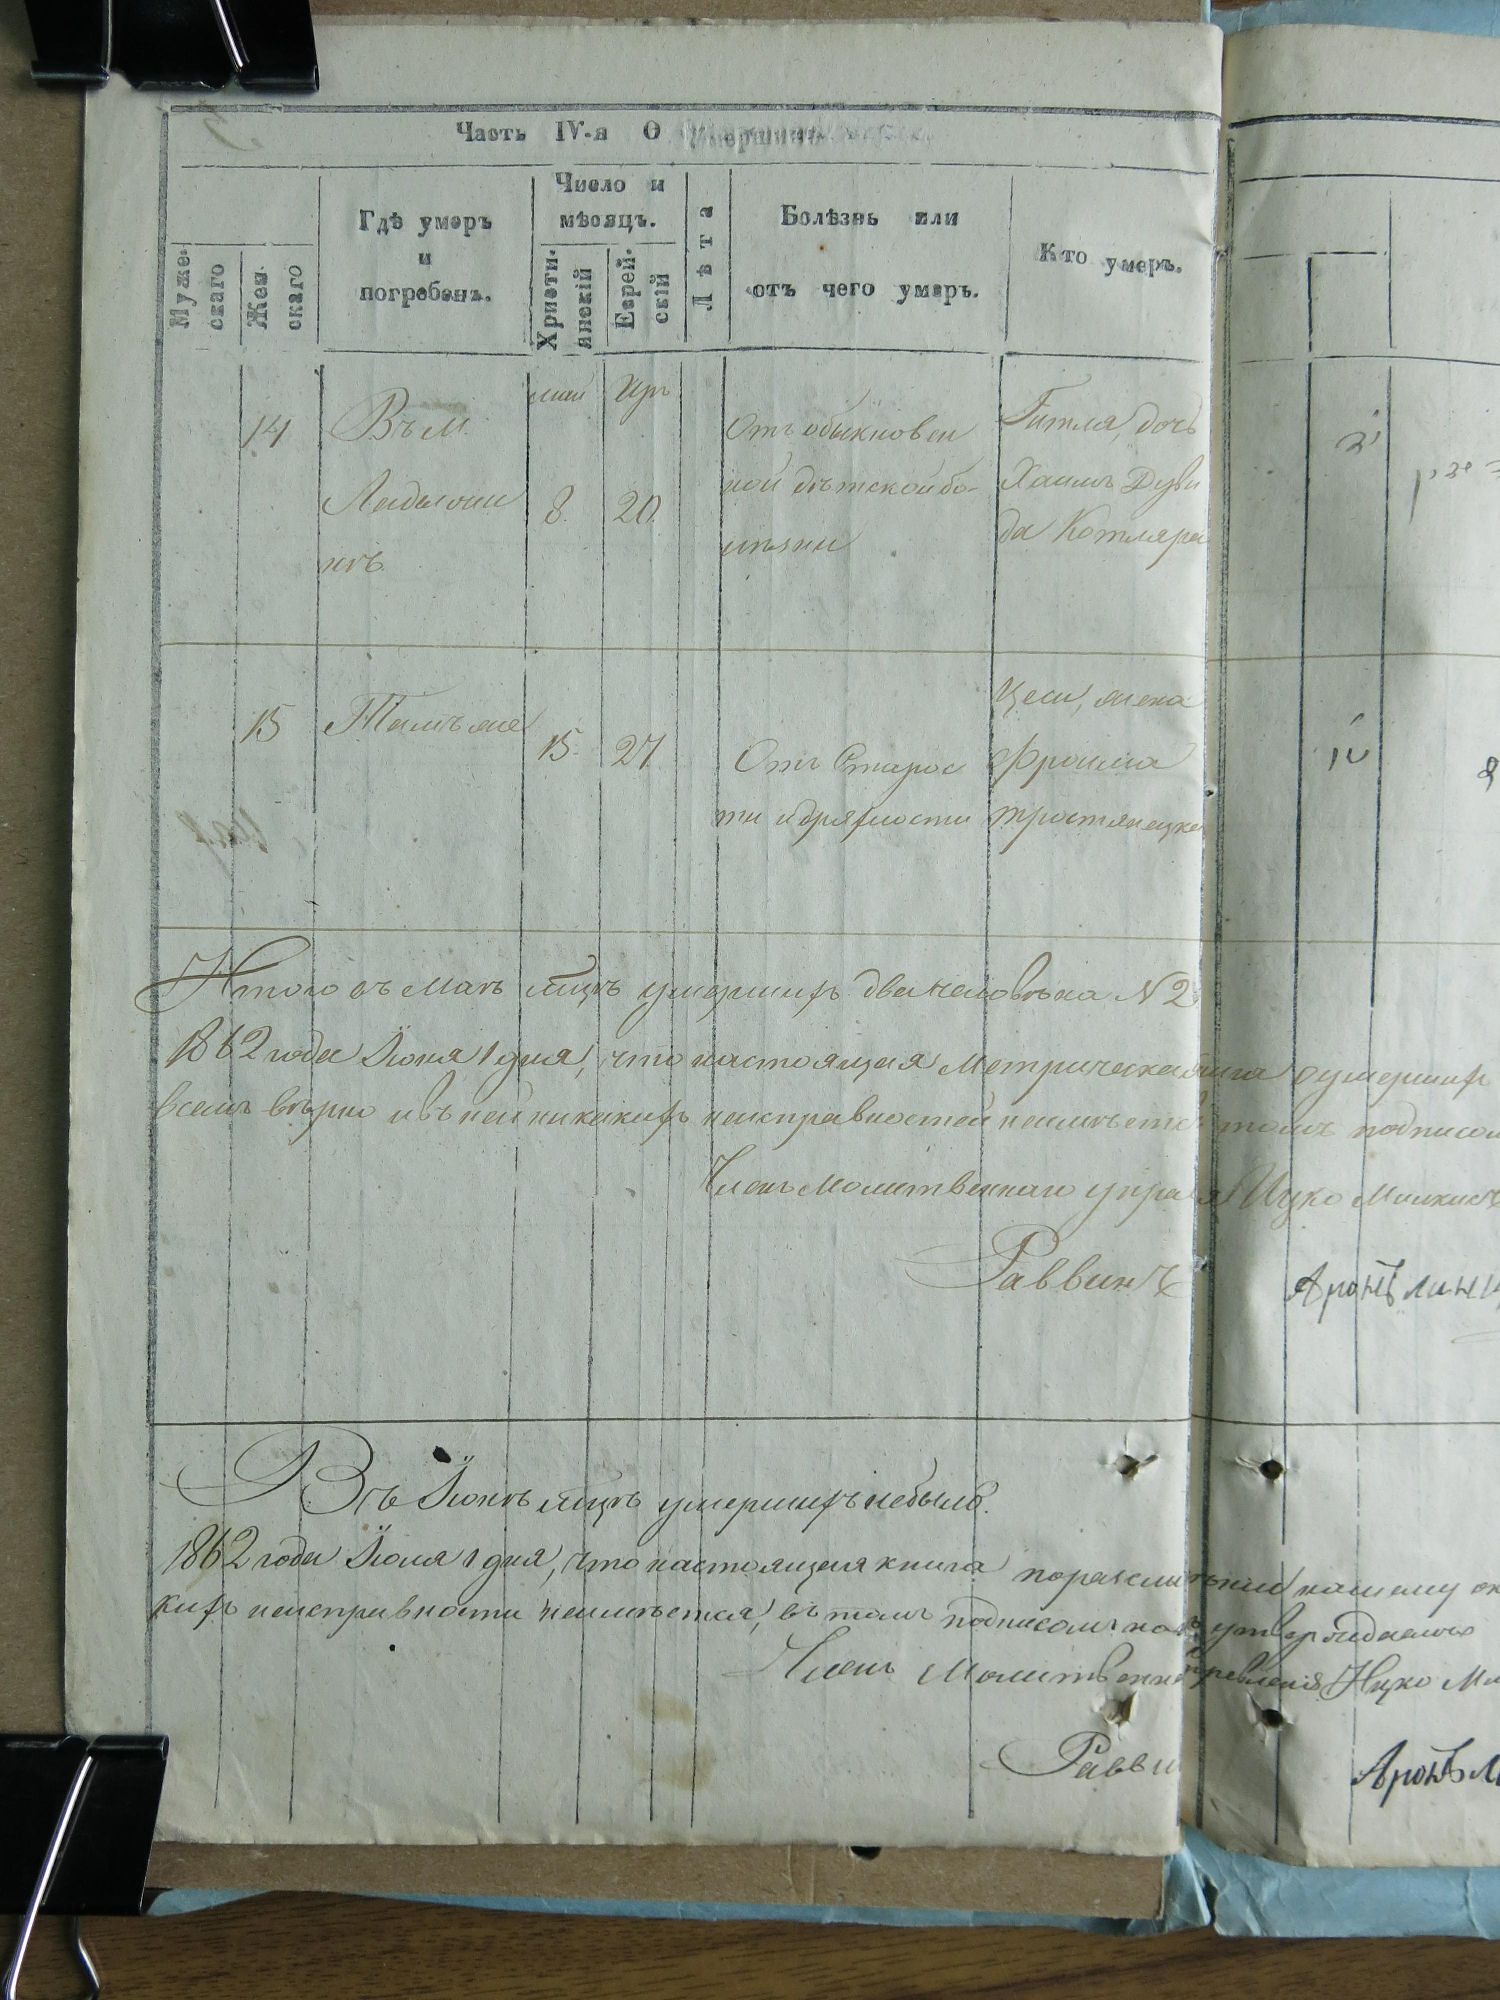 Часть IV-я О умершихъ
Муже-
скаго
Жен
скаго
Гдѣ умеръ
и
погребенъ.
Число и
мѣсяцъ.
Христі-
анскій
Еврей-
скій
Лѣта
Болѣзнь или
отъ чего умеръ.
Кто умеръ.
май Ияръ
14 Въ м. 8. 20 Отъ обыкновен
ной дѣтской бо-
лѣзни
Гитля, дочь
Хаимъ Дуви
да Котляра
15 Тамъ же 15. 27 Отъ Старос
ти и дряхлости
Цеси, жена
Фроима
Тростянецка
Итого въ маѣ мцѣ умершихъ два человѣка №2
1862 года Іюня 1 дня, что настоящая Метрическая книга о умершихъ
всемъ вѣрно и въ ней никакихъ неисправностей неимѣется томъ подписом
Членъ Молитвеннаго Ицко
Раввинъ Аронъ
Въ Іюнѣ мцѣ умершихъ небыло.
1862 года Іюля 1 дня, что настоящая книга нашему
кихъ неисправности неимѣется, въ томъ подписомъ утверждаемъ
Членъ Молитвен правленія Ицко
Равви Аронъ